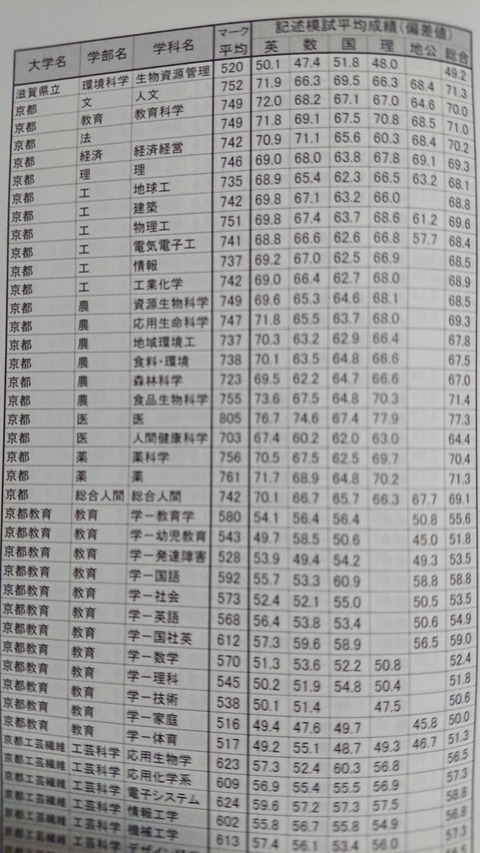 大学名 学部名 学科名 マーク平均 記述模試平均成績(偏差値)
英 数 国 理 地公 総合
滋賀県立 環境科学 生物資源管理 520 50.1 47.4 51.8 48.0 49.2
京都 文 人文 752 71.9 66.3 69.5 66.3 68.4 71.3
京都 教育 教育科学 749 72.0 68.2 67.1 67.0 64.6 70.0
京都 法 749 71.8 69.1 67.5 70.8 68.5 71.0
京都 経済 経済経営 742 70.9 71.1 65.6 60.3 68.4 70.2
京都 理 理 746 69.0 68.0 63.8 67.8 69.1 69.3
京都 工 地球工 735 68.9 65.4 62.3 66.5 63.2 68.1
京都 工 建築 742 69.8 67.1 63.2 66.0 68.8
京都 工 物理工 751 69.8 67.4 63.7 68.6 61.2 69.6
京都 工 電気電子工 741 68.8 66.6 62.6 66.8 57.7 68.4
京都 工 情報 737 69.2 67.0 62.5 66.9 68.5
京都 工 工業化学 742 69.0 66.4 62.7 68.0 68.9
京都 農 資源生物科学 749 69.6 65.3 64.6 68.1 68.5
京都 農 応用生命科学 747 71.8 65.5 63.7 68.0 69.3
京都 農 地域環境工 737 70.3 63.2 62.9 66.4 67.8
京都 農 食料・環境 738 70.1 63.5 64.8 66.6 67.5
京都 農 森林科学 723 69.5 62.2 64.7 66.6 67.0
京都 農 食品生物科学 755 73.6 67.5 64.8 70.3 71.4
京都 医 医 805 76.7 74.6 67.4 77.9 77.3
京都 医 人間健康科学 703 67.4 60.2 62.0 63.0 64.4
京都 薬 薬科学 756 70.5 67.5 62.5 69.7 70.4
京都 薬 薬 761 71.7 68.9 64.8 70.2 71.3
京都 総合人間 総合人間 742 70.1 66.7 65.7 66.3 67.7 69.1
京都教育 教育 学ー教育学 580 54.1 56.4 56.4 50.8 55.6
京都教育 教育 学ー幼児教育 543 49.7 58.5 50.6 45.0 51.8
京都教育 教育 学ー発達障害 528 53.9 49.4 54.2 49.3 53.5
京都教育 教育 学ー国語 592 55.7 53.3 60.9 58.8 58.8
京都教育 教育 学ー社会 573 52.4 52.1 55.0 50.5 53.5
京都教育 教育 学ー英語 568 56.4 53.8 53.4 50.6 54.9
京都教育 教育 学ー国社英 612 57.3 59.6 58.9 56.5 59.0
京都教育 教育 学ー数学 570 51.3 53.6 52.2 50.8 52.4
京都教育 教育 学ー理科 545 50.2 51.9 54.8 50.4 51.8
京都教育 教育 学ー技術 538 50.1 51.4 47.5 50.6
京都教育 教育 学ー家庭 516 49.4 47.6 49.7 45.8 50.0
京都教育 教育 学ー体育 517 49.2 55.1 48.7 49.3 46.7 51.3
京都工芸繊維 工芸科学 応用生物学 623 57.3 52.4 60.3 56.8 56.5
京都工芸繊維 工芸科学 応用化学系 609 56.9 55.4 55.5 56.9 57.3
京都工芸繊維 工芸科学 電子システム 624 59.6 57.2 57.3 57.5 58.8
京都工芸繊維 工芸科学 情報工学 602 55.8 56.7 55.8 54.9 56.8
京都工芸繊維 工芸科学 機械工学 613 57.4 56.1 53.4 56.0 57.3